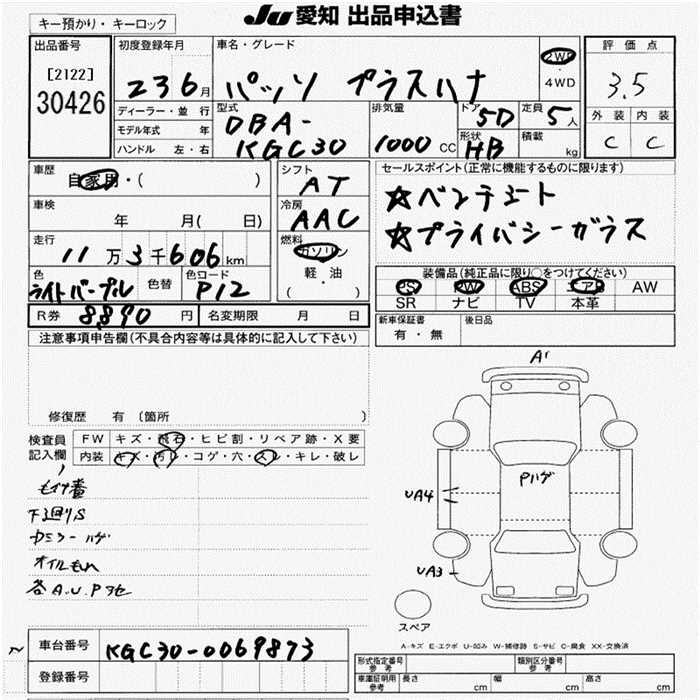 キー預かり・キーロック
JU 愛知 出品申込書
出品番号
[2122]
30426
初度登録年月
23 6月
ディーラー・並 行
モデル年式 年
ハンドル 左・右
車名・グレード
パッソ プラスハナ
2WD
4WD
型式
DBA-
KGC30
排気量
1000 CC
ドア
5D
形状
HB
定員
5人
積載
kg
評価点
3.5
外装 内装
C C
車歴
自家用・( )
車検
年 月( 日)
走行
11万3千606km
色
ライトパープル
色替
色ロード
P12
シフト
AT
冷房
AAC
燃料
ガソリン
軽・油
( )
セールスポイント(正常に機能するものに限ります)
☆ベンチシート
☆プライバシーガラス
装備品(純正品に限り○をつけてください)
PS PW ABS エアB AW
SR ナビ TV 本革
R券 8890 円
名変期限 月 日
新車保証書
有・無
後日品
注意事項申告欄(不具合内容等は具体的に記入して下さい)
修復歴 有 (箇所 )
検査員
記入欄
FW キズ・飛石・ヒビ割・リペア跡・X要
内装 キズ・汚レ・コゲ・穴・スレ・キレ・破レ
下廻りS
カミラーハゲ
オイルもれ
各A.U.P
A1
Pハゲ
UA4
UA3
スペア
A-キズ E-エクボ U-凹み W-補修跡 S-サビ C-腐食 XX-交換済
車台番号
KGC30-0069873
登録番号
形式指定番号
参考
類別区分番号
参考
車庫証明用
参考
長さ cm 幅 cm 高さ cm